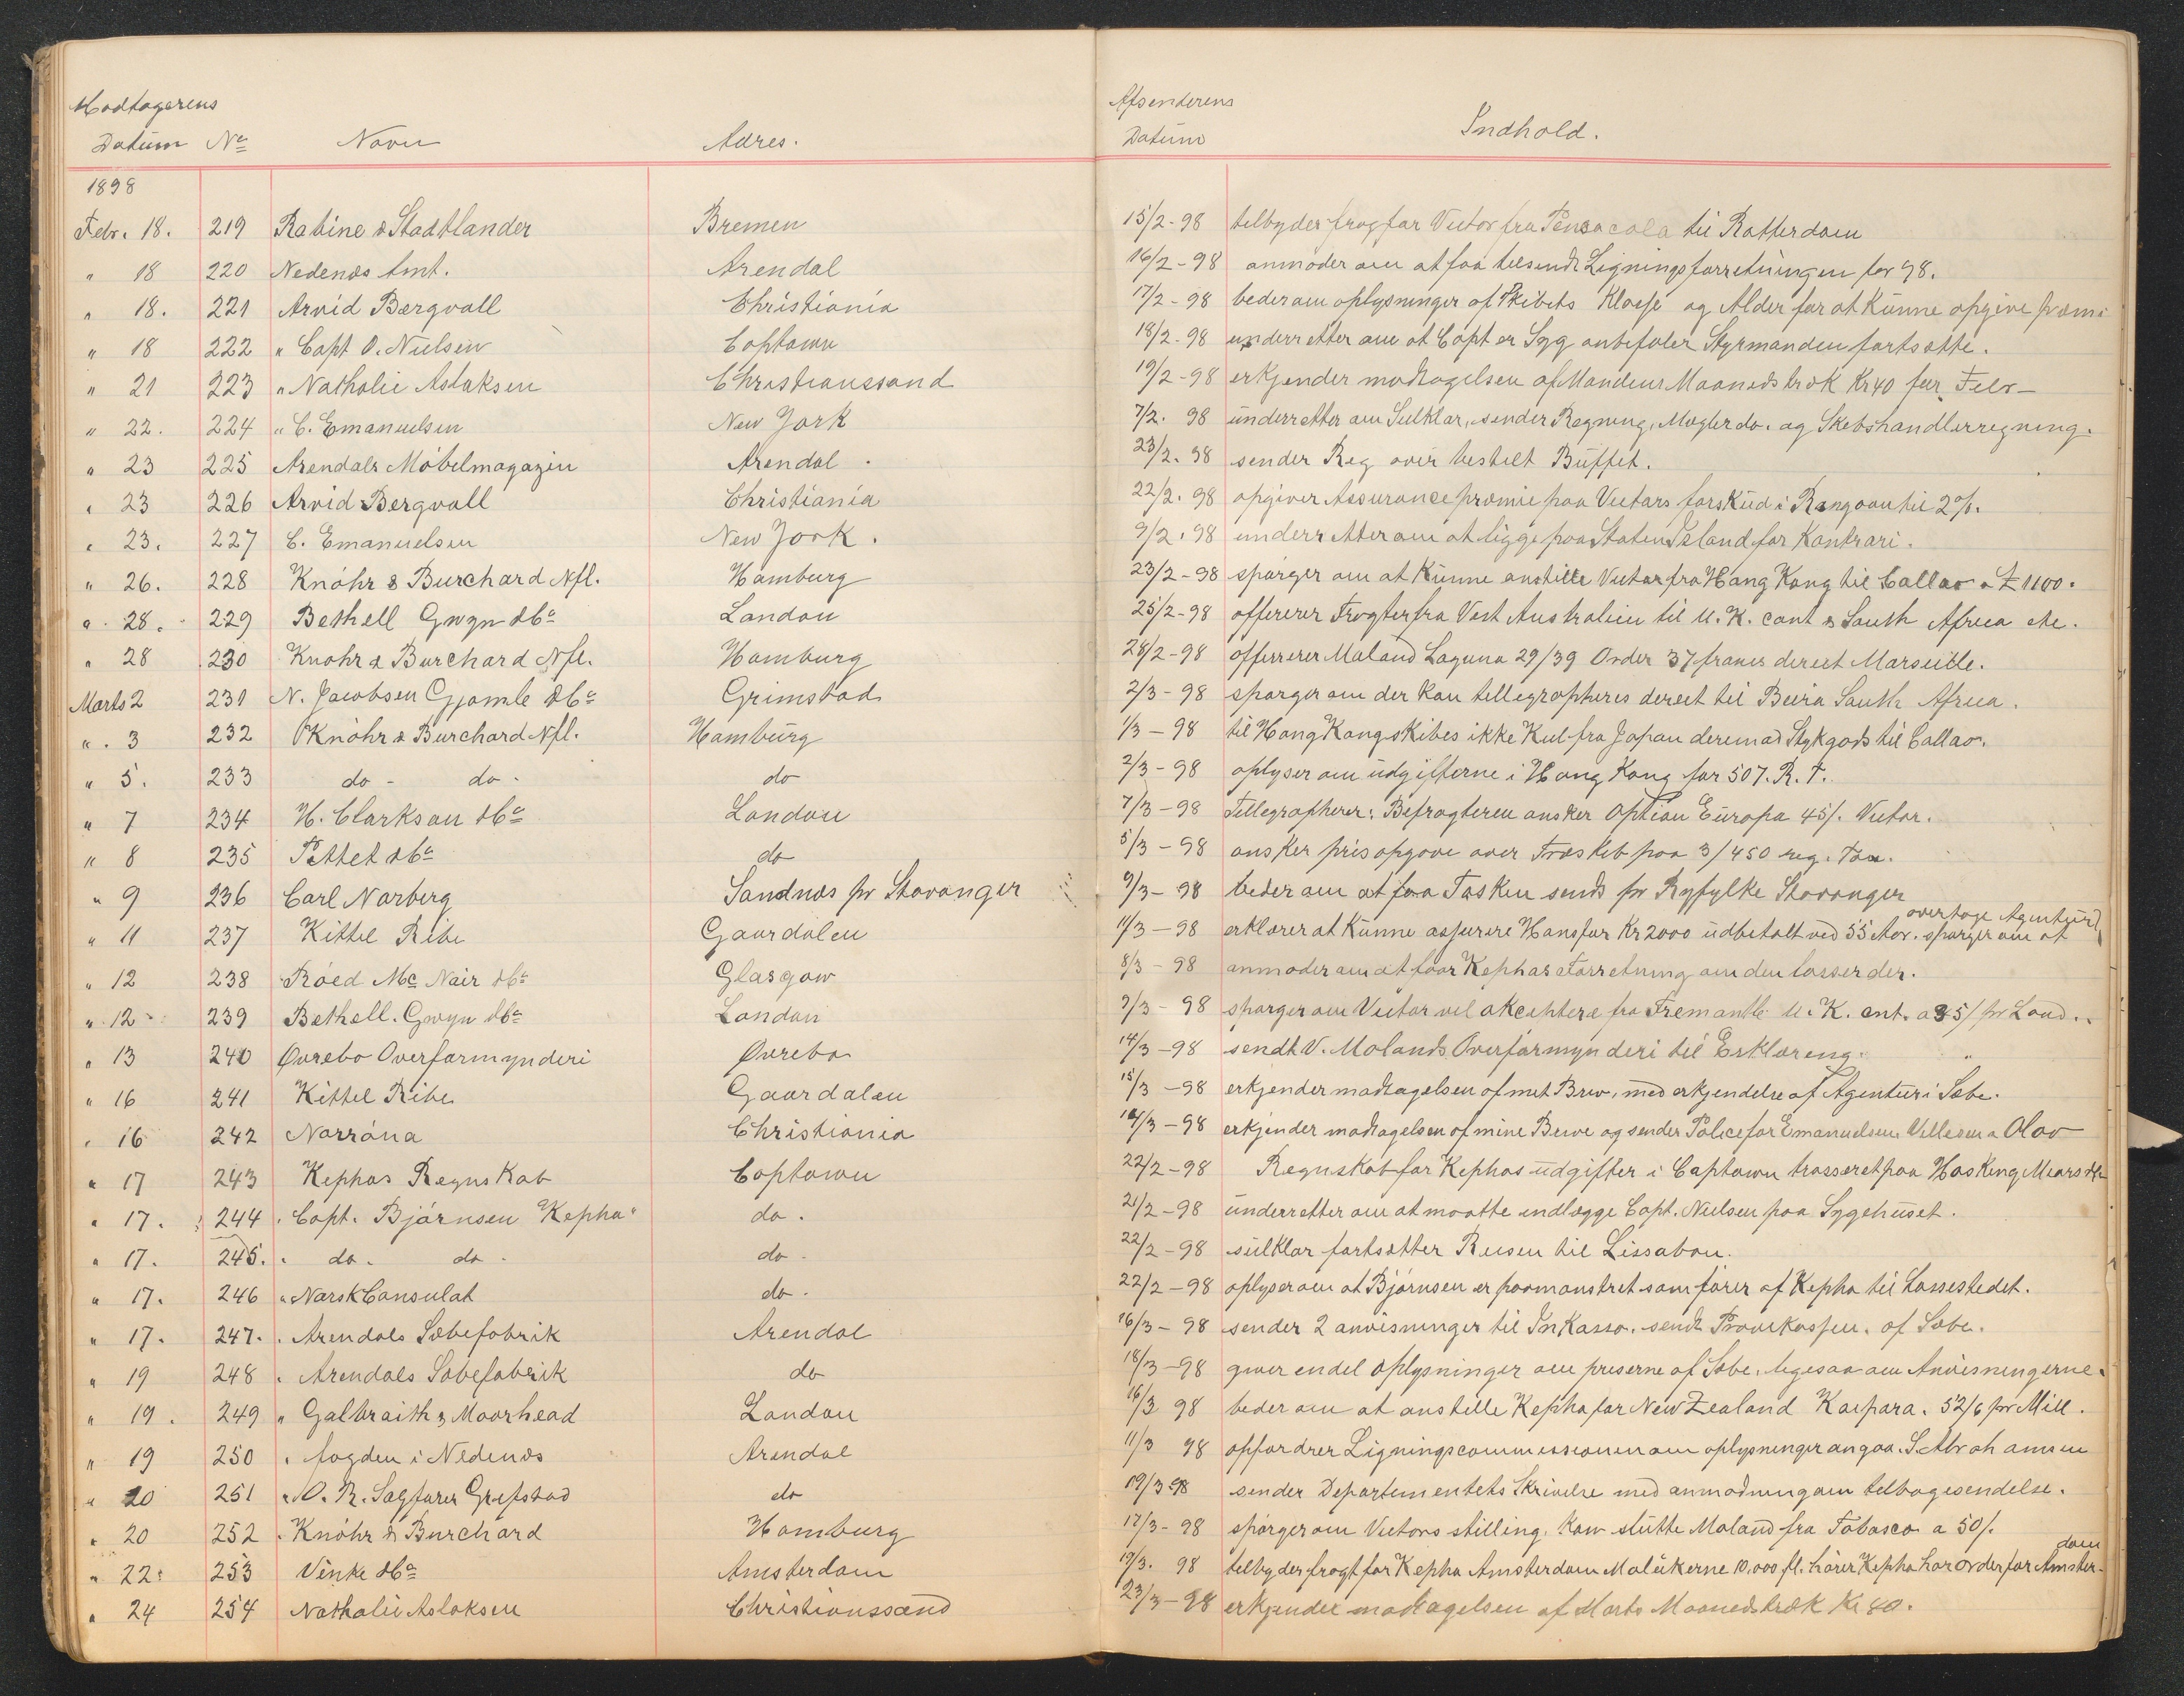 Modtagerens
Datum No Navn Adres.
1898
Febr. 18. 219 Rabine & Stadtlander Bremen
" 18 220 Nedenæs Amt. Arendal
" 18. 221 Arvid Bergvall Christiania
" 18 222 " Capt O. Nielsen Captown
" 21 223 " Nathalie Aslaksen Christianssand
" 22. 224 " C. Emanuelsen New York
" 23 225 Arendals Möbelmagazin Arendal.
" 23 226 Arvid Bergvall Christiania
" 23. 227 C. Emanuelsen New York.
" 26. 228 Knöhr & Burchard Nfl. Hamburg
" 28. 229 Bethell Gwyn & Co London
" 28 230 Knöhr & Burchard Nfl. Hamburg
Marts 2 231 N. Jacobsen Gjømle & Co Grimstad
" 3 232 Knöhr & Burchard Nfl. Hamburg
" 5. 233 do - do - do
" 7 234 H. Clarkson & Co London
" 8 235 Pettet & Co do
" 9 236 Carl Norberg Sandnæs pr Stavanger
" 11 237 Kittel Ribe Gaardalen
" 12 238 Röed Mc Nair & Co Glasgow
" 12 239 Bethell. Gwyn & Co London
" 13 240 Øvrebo Overformynderi Øvrebo
" 16 241 Kittel Ribe Gaardalen
" 16 242 Norröna Christiania
" 17 243 Kephas Regnskab Captown
" 17. 244 " Capt. Björnsen "Kepha" do.
" 17. 245. " do. do. do.
" 17. 246 " Norsk Consulat do.
" 17. 247. " Arendals Sæbefabrik Arendal
" 19 248 " Arendals Sæbefabrik do
" 19. 249 " Galbraith & Moorhead London
" 19 250 " fogden i Nedenæs Arendal
" 20 251 " O. R. Sagfører Grefstad do
" 20 252 " Knöhr & Burchard Hamburg
" 22. 253 Vinke & Co Amsterdam
" 24 254 Nathalie Aslaksen Christianssand
Afsenderens
Datum Indhold.
15/2-98 tilbyder fragt for Victor fra Pensacola til Rotterdam
16/2-98 anmoder om at faa tilsendt Ligningsforretningen for 98.
17/2-98 beder om oplysninger af Skibets Klasse og Alder for at kunne opgive præmi
18/2-98 underretter om at Capt er Syg anbefaler Styrmanden fortsætte.
19/2-98 erkjender modtagelsen af Mandens Maanedstræk Kr 40 for Febr-
7/2. 98 underretter om Seilklar, sender Regning, Mægler do. og Skibshandlerregning.
23/2. 98 sender Reg over bestilt Buffet.
22/2. 98 opgiver Assurancepræmie paa Victors forskud i Rangoon til 2%.
9/2. 98 underretter om at ligge paa Staten Island for Kontrari.
23/2-98 spørger om at kunne anstille Victor fra Hong Kong til Callao a £ 1100.
25/2-98 offererer Fragter fra Vest Australien til U.K. cont & South Africa etc.
28/2-98 offererer Maland Laguna 29/39 Order 37 francs direct Marseille.
2/3-98 spørger om der kan tellegrapheres direct til Beira South Africa.
1/3-98 til Hong Kong skibes ikke Kul fra Japan derimod Stykgods til Callao.
2/3-98 oplyser om udgifterne i Hong Kong for 507. R. T.
7/3-98 Tellegrapherer: Befragteren ønsker Option Europa 45/. Victor.
5/3-98 ønsker prisopgave over Træskib paa 3/450 reg. Ton.
9/3-98 beder om at faa Tasken sendt pr Ryfylke Stavanger
11/3-98 erklærer at kunne assurere Hans for Kr 2000 udbetalt ved 55 Aar. spørger om at overtage Agentur
8/3-98 anmoder om at faa Kephas Forretning om den losser der.
9/3-98 spørger om Victor vil akceptere fra Fremantle U.K. cnt. a 35/ pr Load.
14/3-98 sendt V. Molands Overformynderi til Erklæring.
15/3-98 erkjender modtagelsen af mit Brev, med erkjendelse af Agentur i Sæbe.
14/3-98 erkjender modtagelsen af mine Breve og sender Police for Emanuelsen Olav
22/2-98 Regnskab for Kephas udgifter i Captown trasseret paa Hosking Mears & Co
21/2-98 underretter om at maatte indlægge Capt. Nielsen paa Sygehuset.
22/2-98 seilklar fortsætter Reisen til Lissabon.
22/2-98 oplyser om at Björnsen er paamønstret som fører af Kepha til Lossestedet.
16/3-98 sender 2 anvisninger til Inkasso. sendt Prøvekassen. af Sæbe.
18/3-98 giver endel Oplysninger om priserne af Sæbe. ligesaa om Anvisningerne.
16/3 98 beder om at anstille Kepha for New Zealand Kaipara. 52/6 pr Mill.
11/3 98 opfordrer Ligningscommissionen om oplysninger angaa. S. Abrahamsen
19/3 98 sender Departementets Skrivelse med anmodning om tilbagesendelse.
17/3-98 spørger om Victors stilling. Kan slutte Moland fra Tobasco a 50/.
19/3. 98 tilbyder fragt for Kepha Amsterdam Molukerne 10.000 fl. hører Kepha har order for Amsterdam
23/3-98 erkjender modtagelsen af Marts Maanedstræk Kr 40.